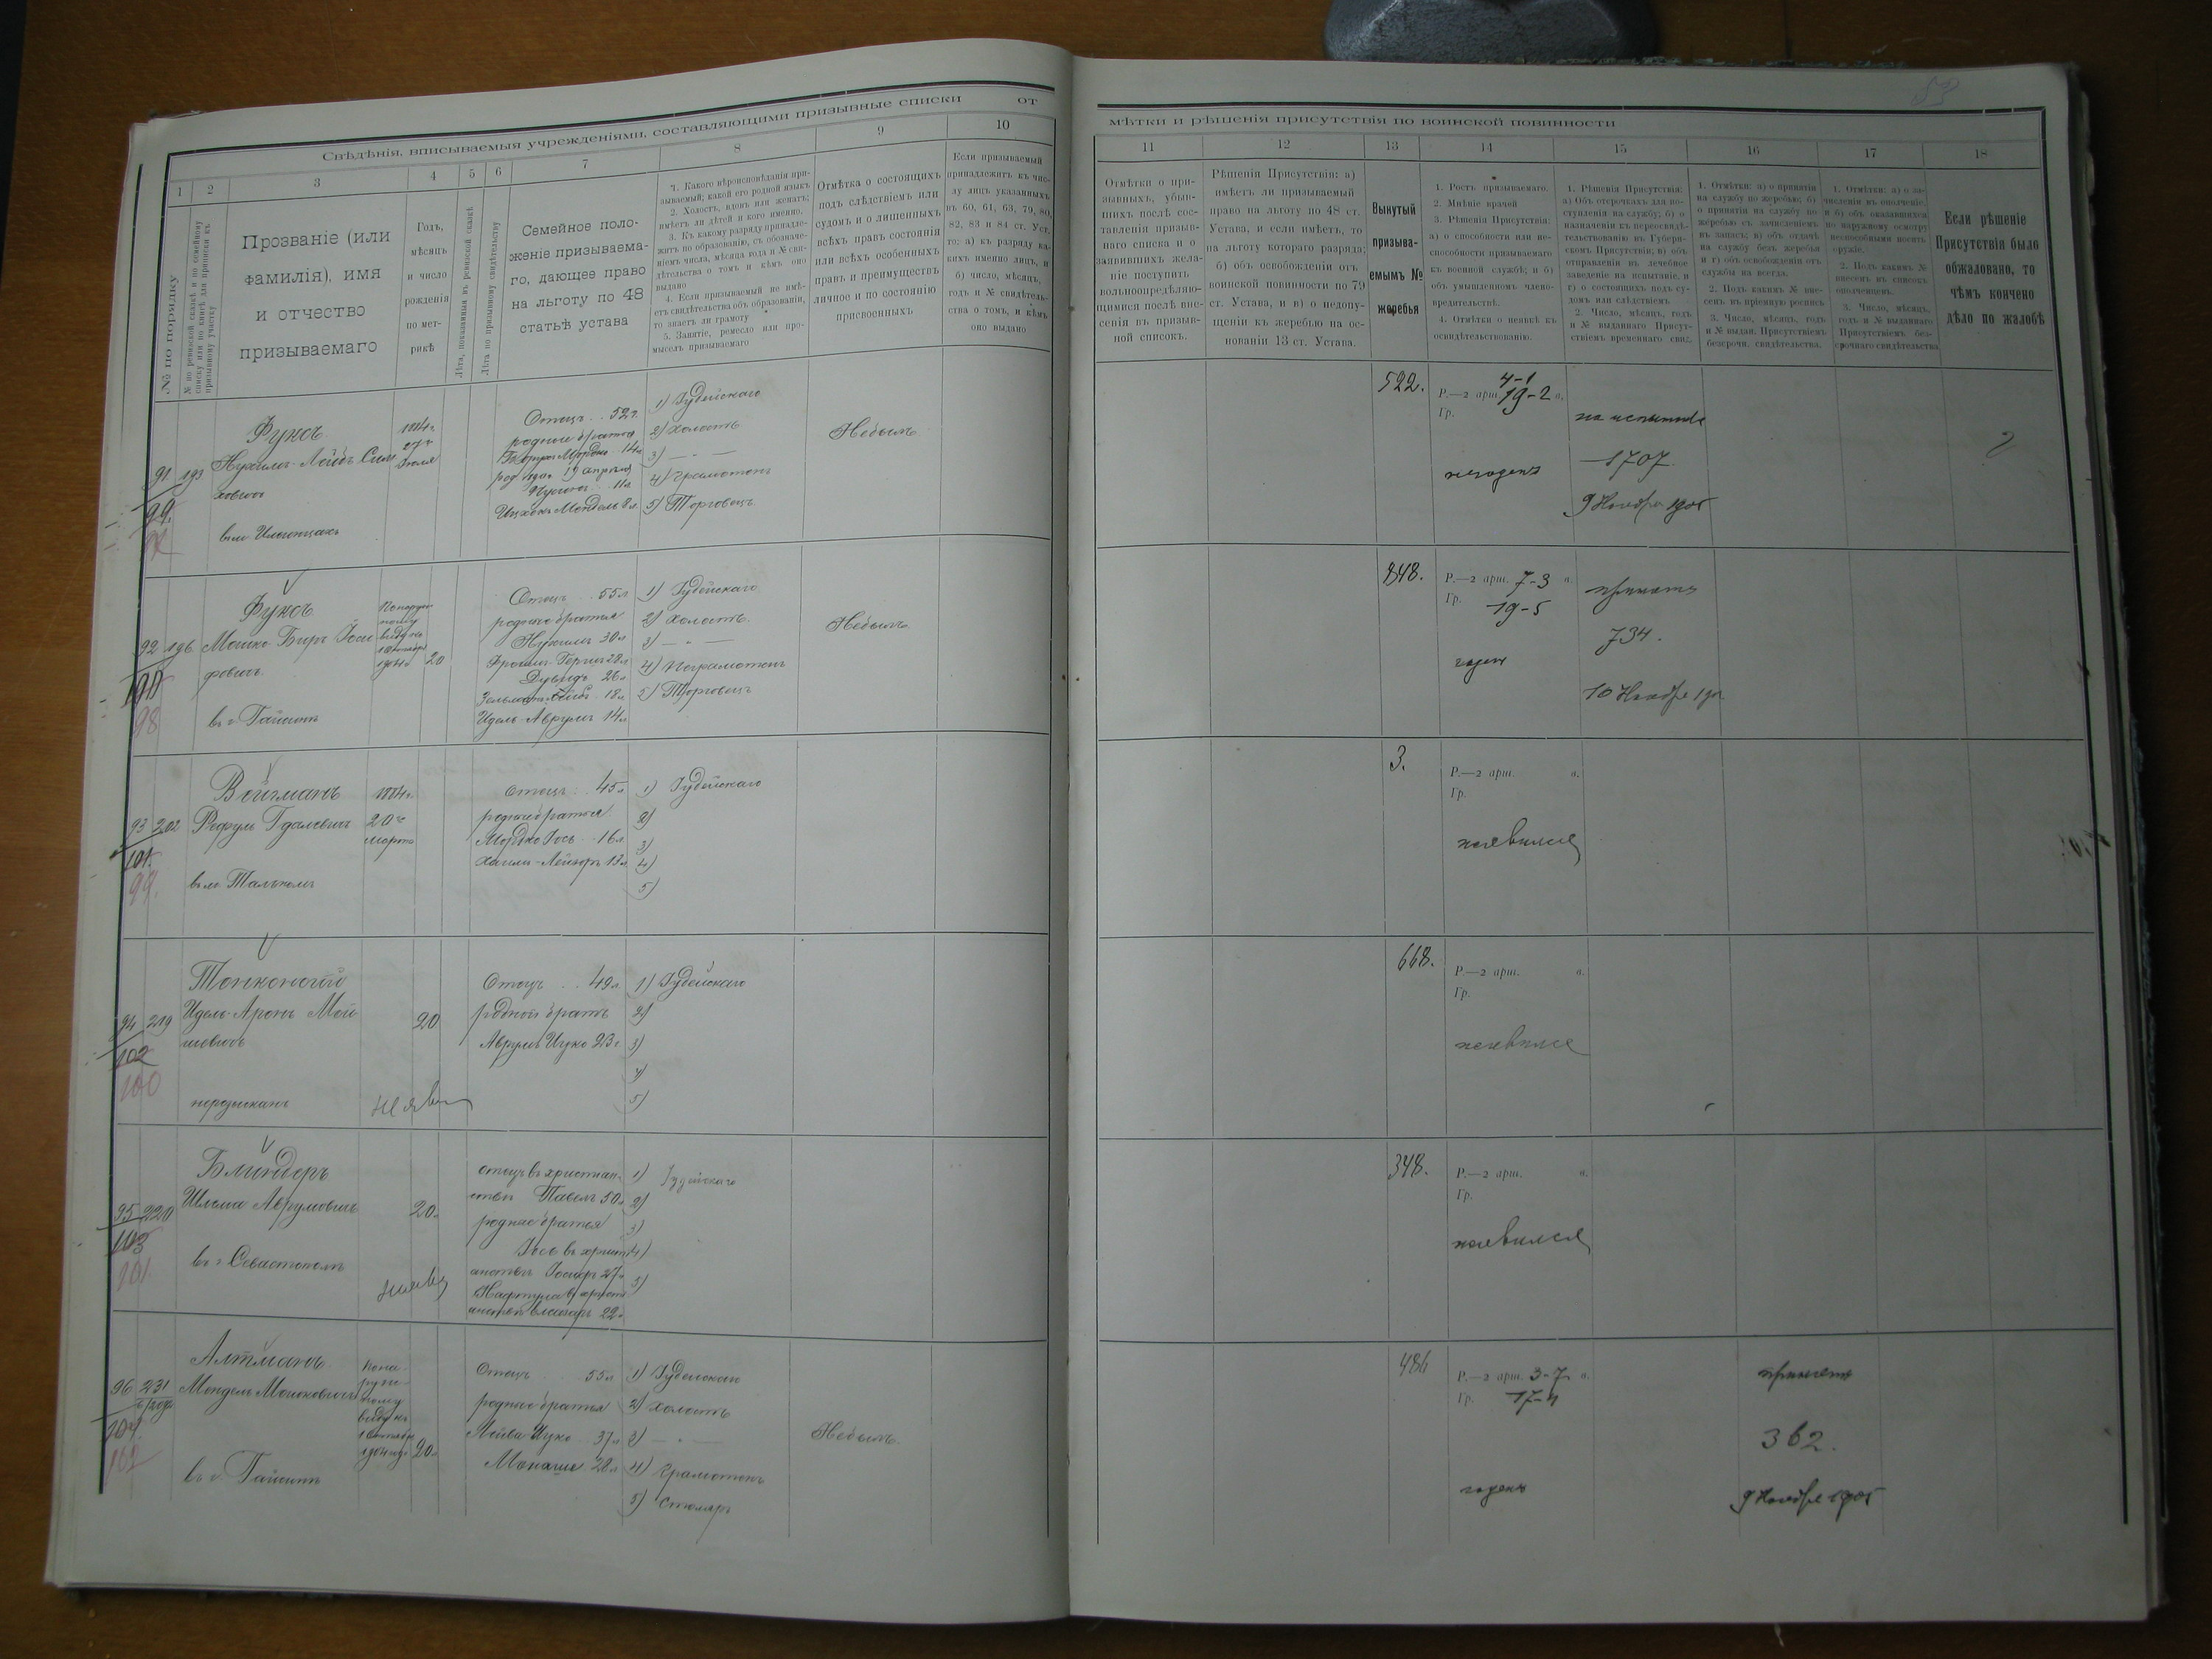 Свѣдѣнія, вписываемыя учрежденіями, составляющими призывные списки
от
1 2 3 4 5 6 7 8 9 10
№ по порядку
№ по ревизской сказкѣ и по семейному списку или по книгѣ для приписки къ призывному участку
Прозваніе (или
фамилія), имя
и отчество
призываемаго
Годъ,
мѣсяцъ
и число
рожденія
по мет-
рикѣ
Лѣта, показанныя въ ревизской сказкѣ
Лѣта по призывному свидѣтельству
Семейное поло-
женіе призываема-
го, дающее право
на льготу по 48
статьѣ устава
1. Какого вѣроисповѣданія при-
зываемый; какой его родной языкъ
2. Холостъ, вдовъ или женатъ;
имѣетъ ли дѣтей и кого именно.
3. Къ какому разряду принадле-
житъ по образованію, съ обозначе-
ніемъ числа, мѣсяца года и № сви-
дѣтельства о томъ и кѣмъ оно
выдано
4. Если призываемый не имѣ-
етъ свидѣтельства объ образованіи,
то знаетъ ли грамоту
5. Занятіе, ремесло или про-
мыселъ призываемаго
Отмѣтка о состоящихъ
подъ слѣдствіемъ или
судомъ и о лишенныхъ
всѣхъ правъ состоянія
или всѣхъ особенныхъ
правъ и преимуществъ
личное и по состоянію
присвоенныхъ
Если призываемый
принадлежитъ къ чис-
лу лицъ указанныхъ
въ 60, 61, 63, 79, 80,
82, 83 и 84 ст. Уст.
то: а) къ разряду ка-
кихъ именно лицъ, и
б) число, мѣсяцъ,
годъ и № свидѣтель-
ства о томъ, и кѣмъ
оно выдано
91 193
99.
Фуксъ
Нухимъ-Лейбъ Сим
ховичъ
1884г.
27го
Іюля
Отецъ 52г.
родные братья
11л.
1) Іудейскаго
2) Холостъ
3) — " —
4) Грамотенъ
5) Торговецъ
Небылъ
92 196
98
Фуксъ
Мошко Беръ Іоси
фовичъ
въ г. Гайсинѣ
По наруж
ному
виду къ
1904г 20
Отецъ 55л.
родные братья
Нухимъ 30л
Дувидъ 26л
Идель-Аврумъ 14л
1) Іудейскаго
2) Холостъ.
3) — " —
4) Неграмотенъ
5) Торговецъ
Небылъ
93 202
101.
99.
Вейзманъ
1884г.
20го
марта
Отецъ 45л
родные братья
Мордко Іось 16л.
Хаимъ-Лейзоръ 13л
1) Іудейскаго
2)
3)
4)
5)
94 219
102
100
Тонконогій
Идель-Аронъ Мой
шовичъ
неразысканъ
20
Отецъ 49л
родной братъ
Аврумъ Ицко 23г.
1) Іудейскаго
2)
3)
4)
5)
95 220
103
101.
Блиндеръ
Шлома Аврумовичъ
въ г. Севастополѣ
20л
отецъ въ христіан-
ствѣ Павелъ 50л
родные братья
Іось въ христі
анствѣ 27л
22г
1) Іудейскаго
2)
3)
4)
5)
96 231
104
102
Алтманъ
Мендель Мошковичъ
въ г. Гайсинѣ
По на-
руж-
ному
виду къ
20л
Отецъ 55л
родные братья
Лейба Ицко 37л
Монаше 28л
1) Іудейскаго
2) Холостъ
3) — " —
4) Грамотенъ
5) Столяръ
Небылъ
мѣтки и рѣшенія присутствія по воинской повинности
11 12 13 14 15 16 17 18
Отмѣтки о при-
зывныхъ, убыв-
шихъ послѣ сос-
тавленія призыв-
наго списка и о
заявившихъ жела-
ніе поступить
вольноопредѣляю-
щимися послѣ вне-
сенія въ призыв-
ной списокъ.
Рѣшенія Присутствія: а)
имѣетъ ли призываемый
право на льготу по 48 ст.
Устава, и если имѣетъ, то
на льготу котораго разряда;
б) объ освобожденіи отъ
воинской повинности по 79
ст. Устава, и в) о недопу-
щеніи къ жеребью на ос-
нованіи 13 ст. Устава.
Вынутый
призыва-
емымъ №
жеребья
1. Ростъ призываемаго.
2. Мнѣніе врачей
3. Рѣшенія Присутствія:
а) о способности или не-
способности призываемаго
къ военной службѣ; и б)
объ умышленномъ члено-
вредительствѣ.
4. Отмѣтки о неявкѣ къ
освидѣтельствованію.
1. Рѣшенія Присутствія:
а) Объ отсрочкахъ для по-
ступленія на службу; б) о
назначеніи къ переосвидѣ-
тельствованію въ Губерн-
скомъ Присутствіи; в) объ
отправленіи въ лечебное
заведеніе на испытаніе, и
г) о состоящихъ подъ су-
домъ или слѣдствіемъ.
2. Число, мѣсяцъ, годъ
и № выданнаго Присут-
ствіемъ временнаго свид.
1. Отмѣтки: а) о принятіи
на службу по жеребью; б)
о принятіи на службу по
жеребью съ зачисленіемъ
въ запасъ; в) объ отдачѣ
на службу безъ жеребья
и г) объ освобожденіи отъ
службы на всегда.
2. Подъ какимъ № вне-
сенъ въ пріемную роспись
3. Число, мѣсяцъ, годъ
и № выдан. Присутствіемъ
безсрочн. свидѣтельства.
1. Отмѣтки: а) о за-
численіи въ ополченіе,
и б) объ оказавшихся
по наружному осмотру
неспособными носить
оружіе.
2. Подъ какимъ №
внесенъ въ списокъ
ополченцевъ.
3. Число, мѣсяцъ,
годъ и № выданнаго
Присутствіемъ без-
срочнаго свидѣтельства
Если рѣшеніе
Присутствія было
обжаловано, то
чѣмъ кончено
дѣло по жалобѣ
522.
4-1
Р.—2 арш. 19-2 в.
Гр.
негоденъ
1707
9 Ноября 1905
848.
Р.—2 арш. 7-3 в.
Гр. 19-5
годенъ
принятъ
734.
10 Ноября
3.
Р.—2 арш. в.
Гр.
неявился
668.
Р.—2 арш. в.
Гр.
неявился
348.
Р.—2 арш. в.
Гр.
неявился
486
Р.—2 арш. 3-7 в.
Гр. 17-4
годенъ
принятъ
362.
9 Ноября 1905